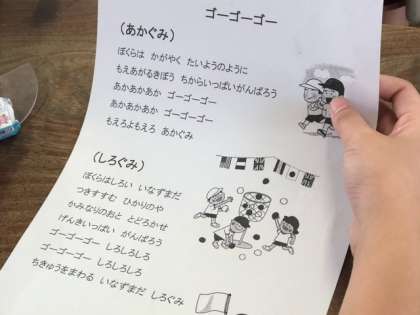 ゴーゴーゴー
（あかぐみ）
ぼくらは かがやく たいようのように
もえあがるきぼう ちからいっぱいがんばろう
あかあかあか ゴーゴーゴー
あかあかあか ゴーゴーゴー
もえろよもえろ あかぐみ
（しろぐみ）
ぼくらはしろい いなずまだ
つきすすむ ひかりのや
かみなりのおと とどろかせ
げんきいっぱい がんばろう
ゴーゴーゴー しろしろしろ
ゴーゴーゴー しろしろしろ
ちきゅうをまわる いなずまだ しろぐみ